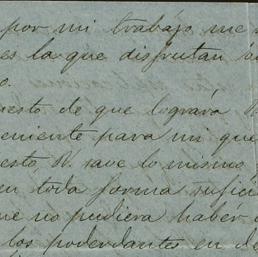 por mi trabajo me
es la que disfrutan
o.
uesto de que lograra
eniente para mi que
esto N. save lo mismo
en toda forma sufici
ue no pudiera haber
los poderdantes en de